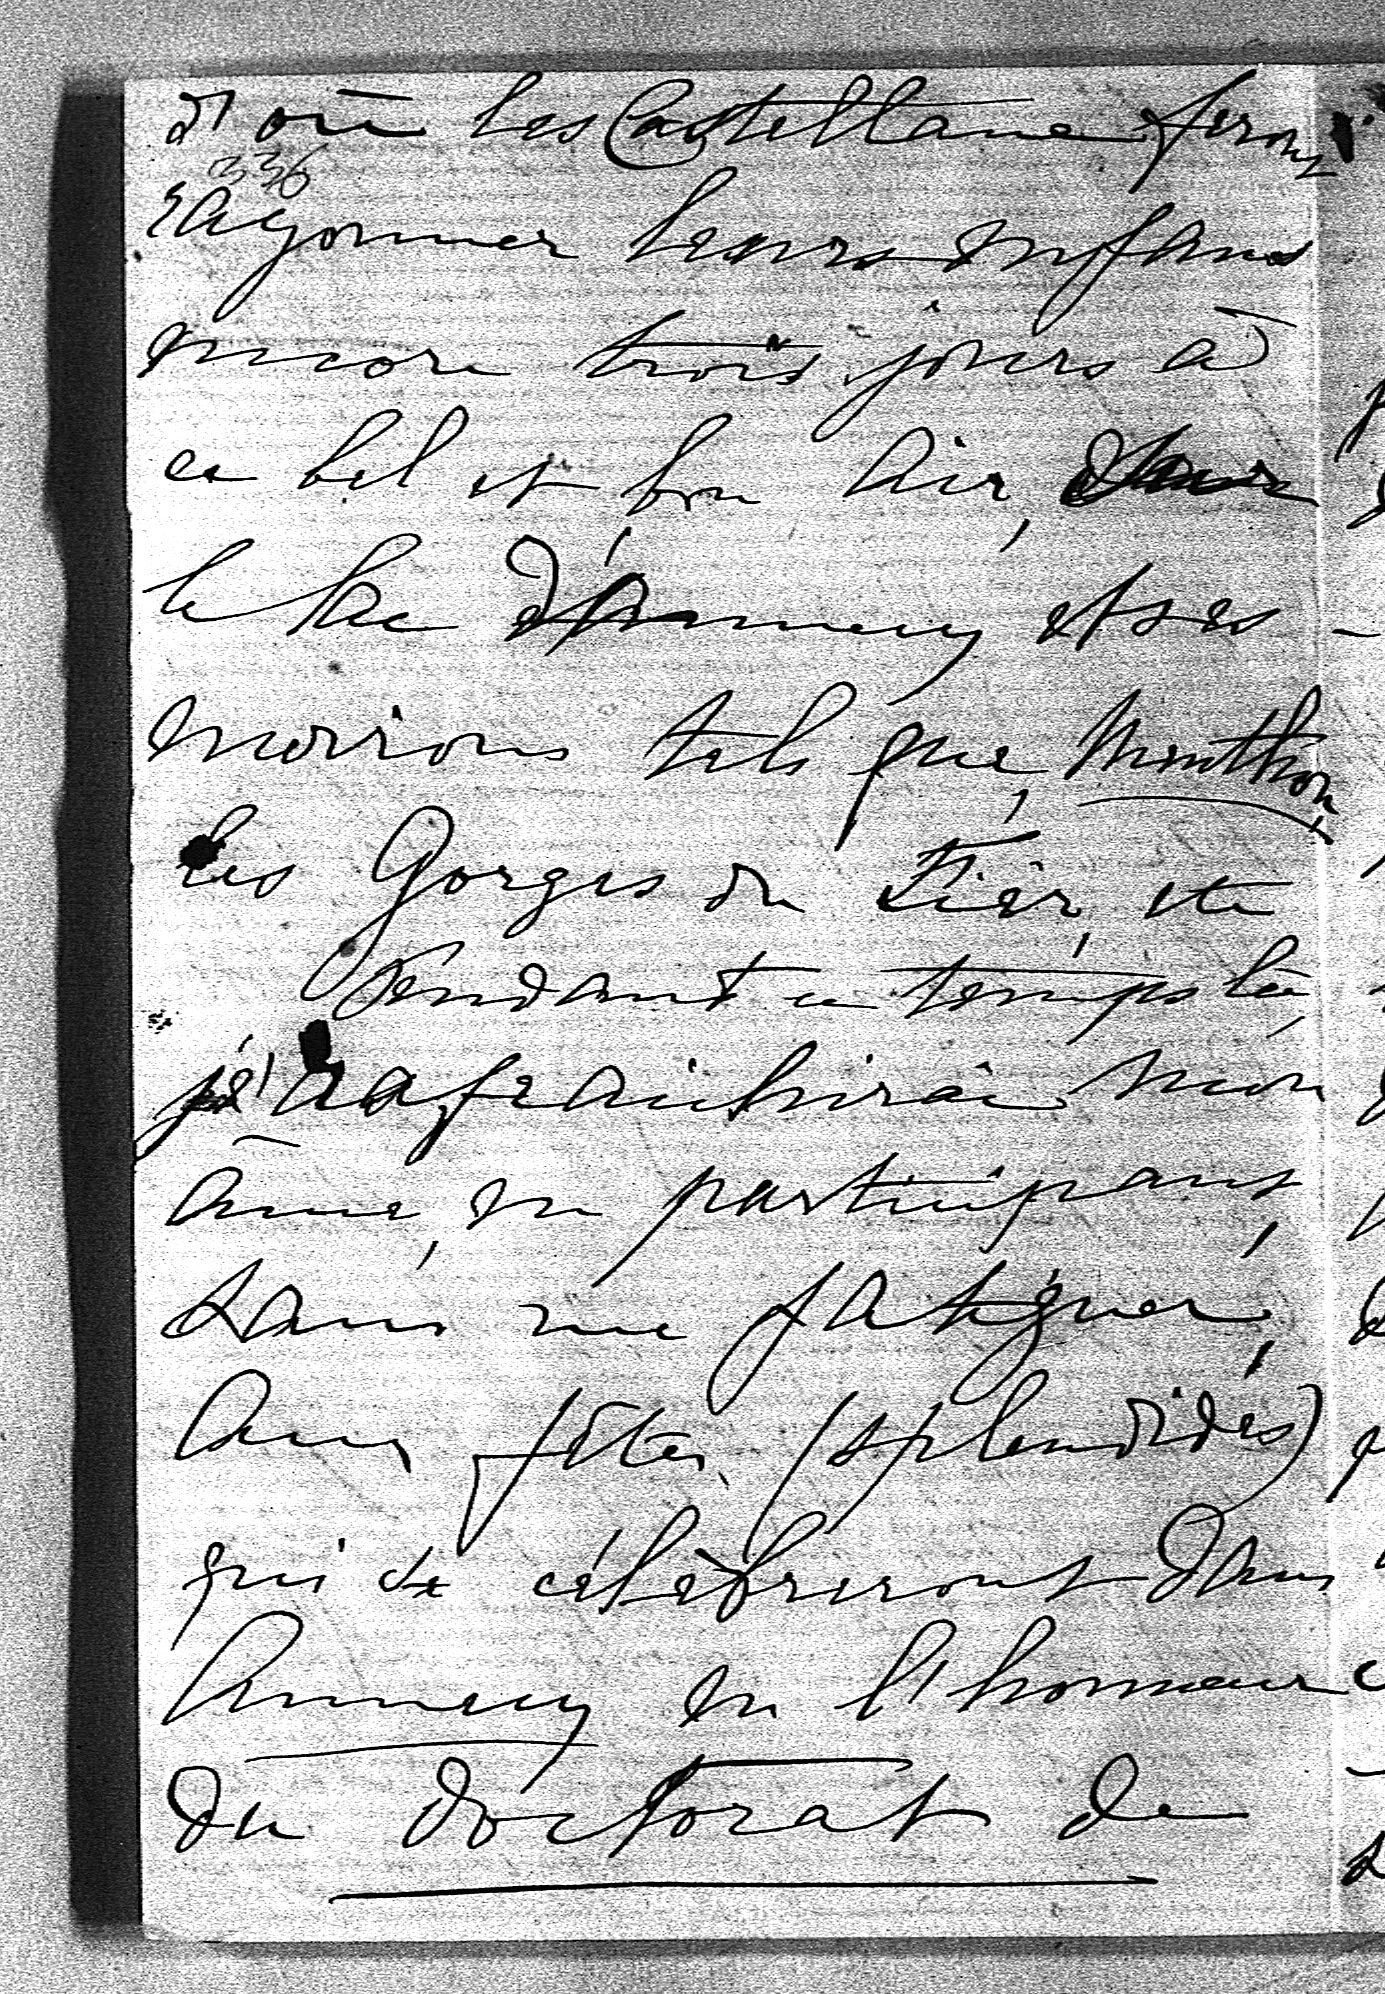 d'où les Castellane feront
336
rayonner leurs enfans
encore trois jours à
ce bel et bon air, sur
le lac d'Annecy et ses
environs tels que, Menthon,
les Gorges du Fier, etc
Pendant ce temps là
je rafraichirai mon
âme, en participant,
sans me fatiguer,
aux fêtes (splendides)
qui se célèbreront dans
Annecy en l'honneur
du doctorat de